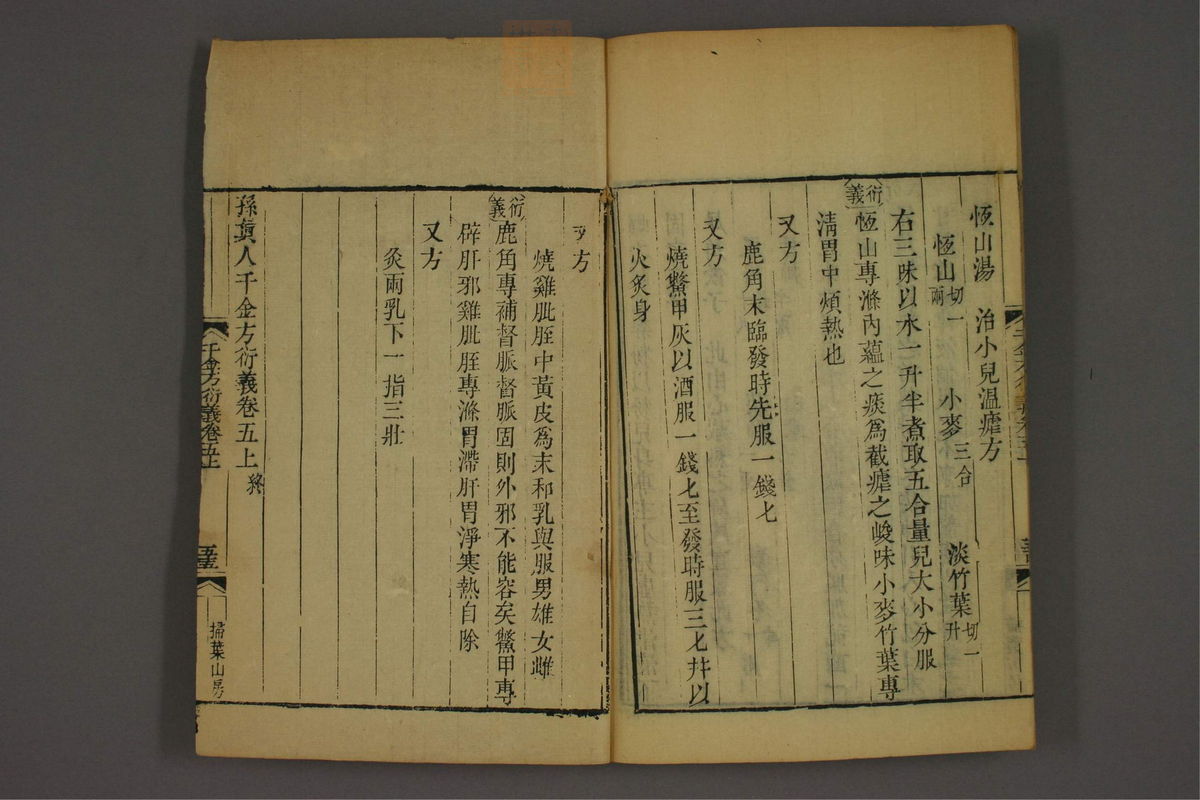 恆山湯　治小兒溫瘧方
恆山切一兩　小麥三合　淡竹葉切一升
右三味以水一升半煮取五合量兒大小分服
衍義
恆山專滌內蘊之痰爲截瘧之峻味小麥竹葉專
清胃中煩熱也
又方
鹿角末臨發時先服一錢七
又方
燒鱉甲灰以酒服一錢七至發時服三七幷以
火炙身
又方
燒雞肶胵中黃皮爲末和乳與服男雄女雌
衍義
鹿角專補督脈督脈固則外邪不能容矣鱉甲專
辟肝邪雞肶胵專滌胃滯肝胃淨寒熱自除
又方
灸兩乳下一指三壯
孫眞人千金方衍義卷五上終
千金方衍義卷五上
掃葉山房